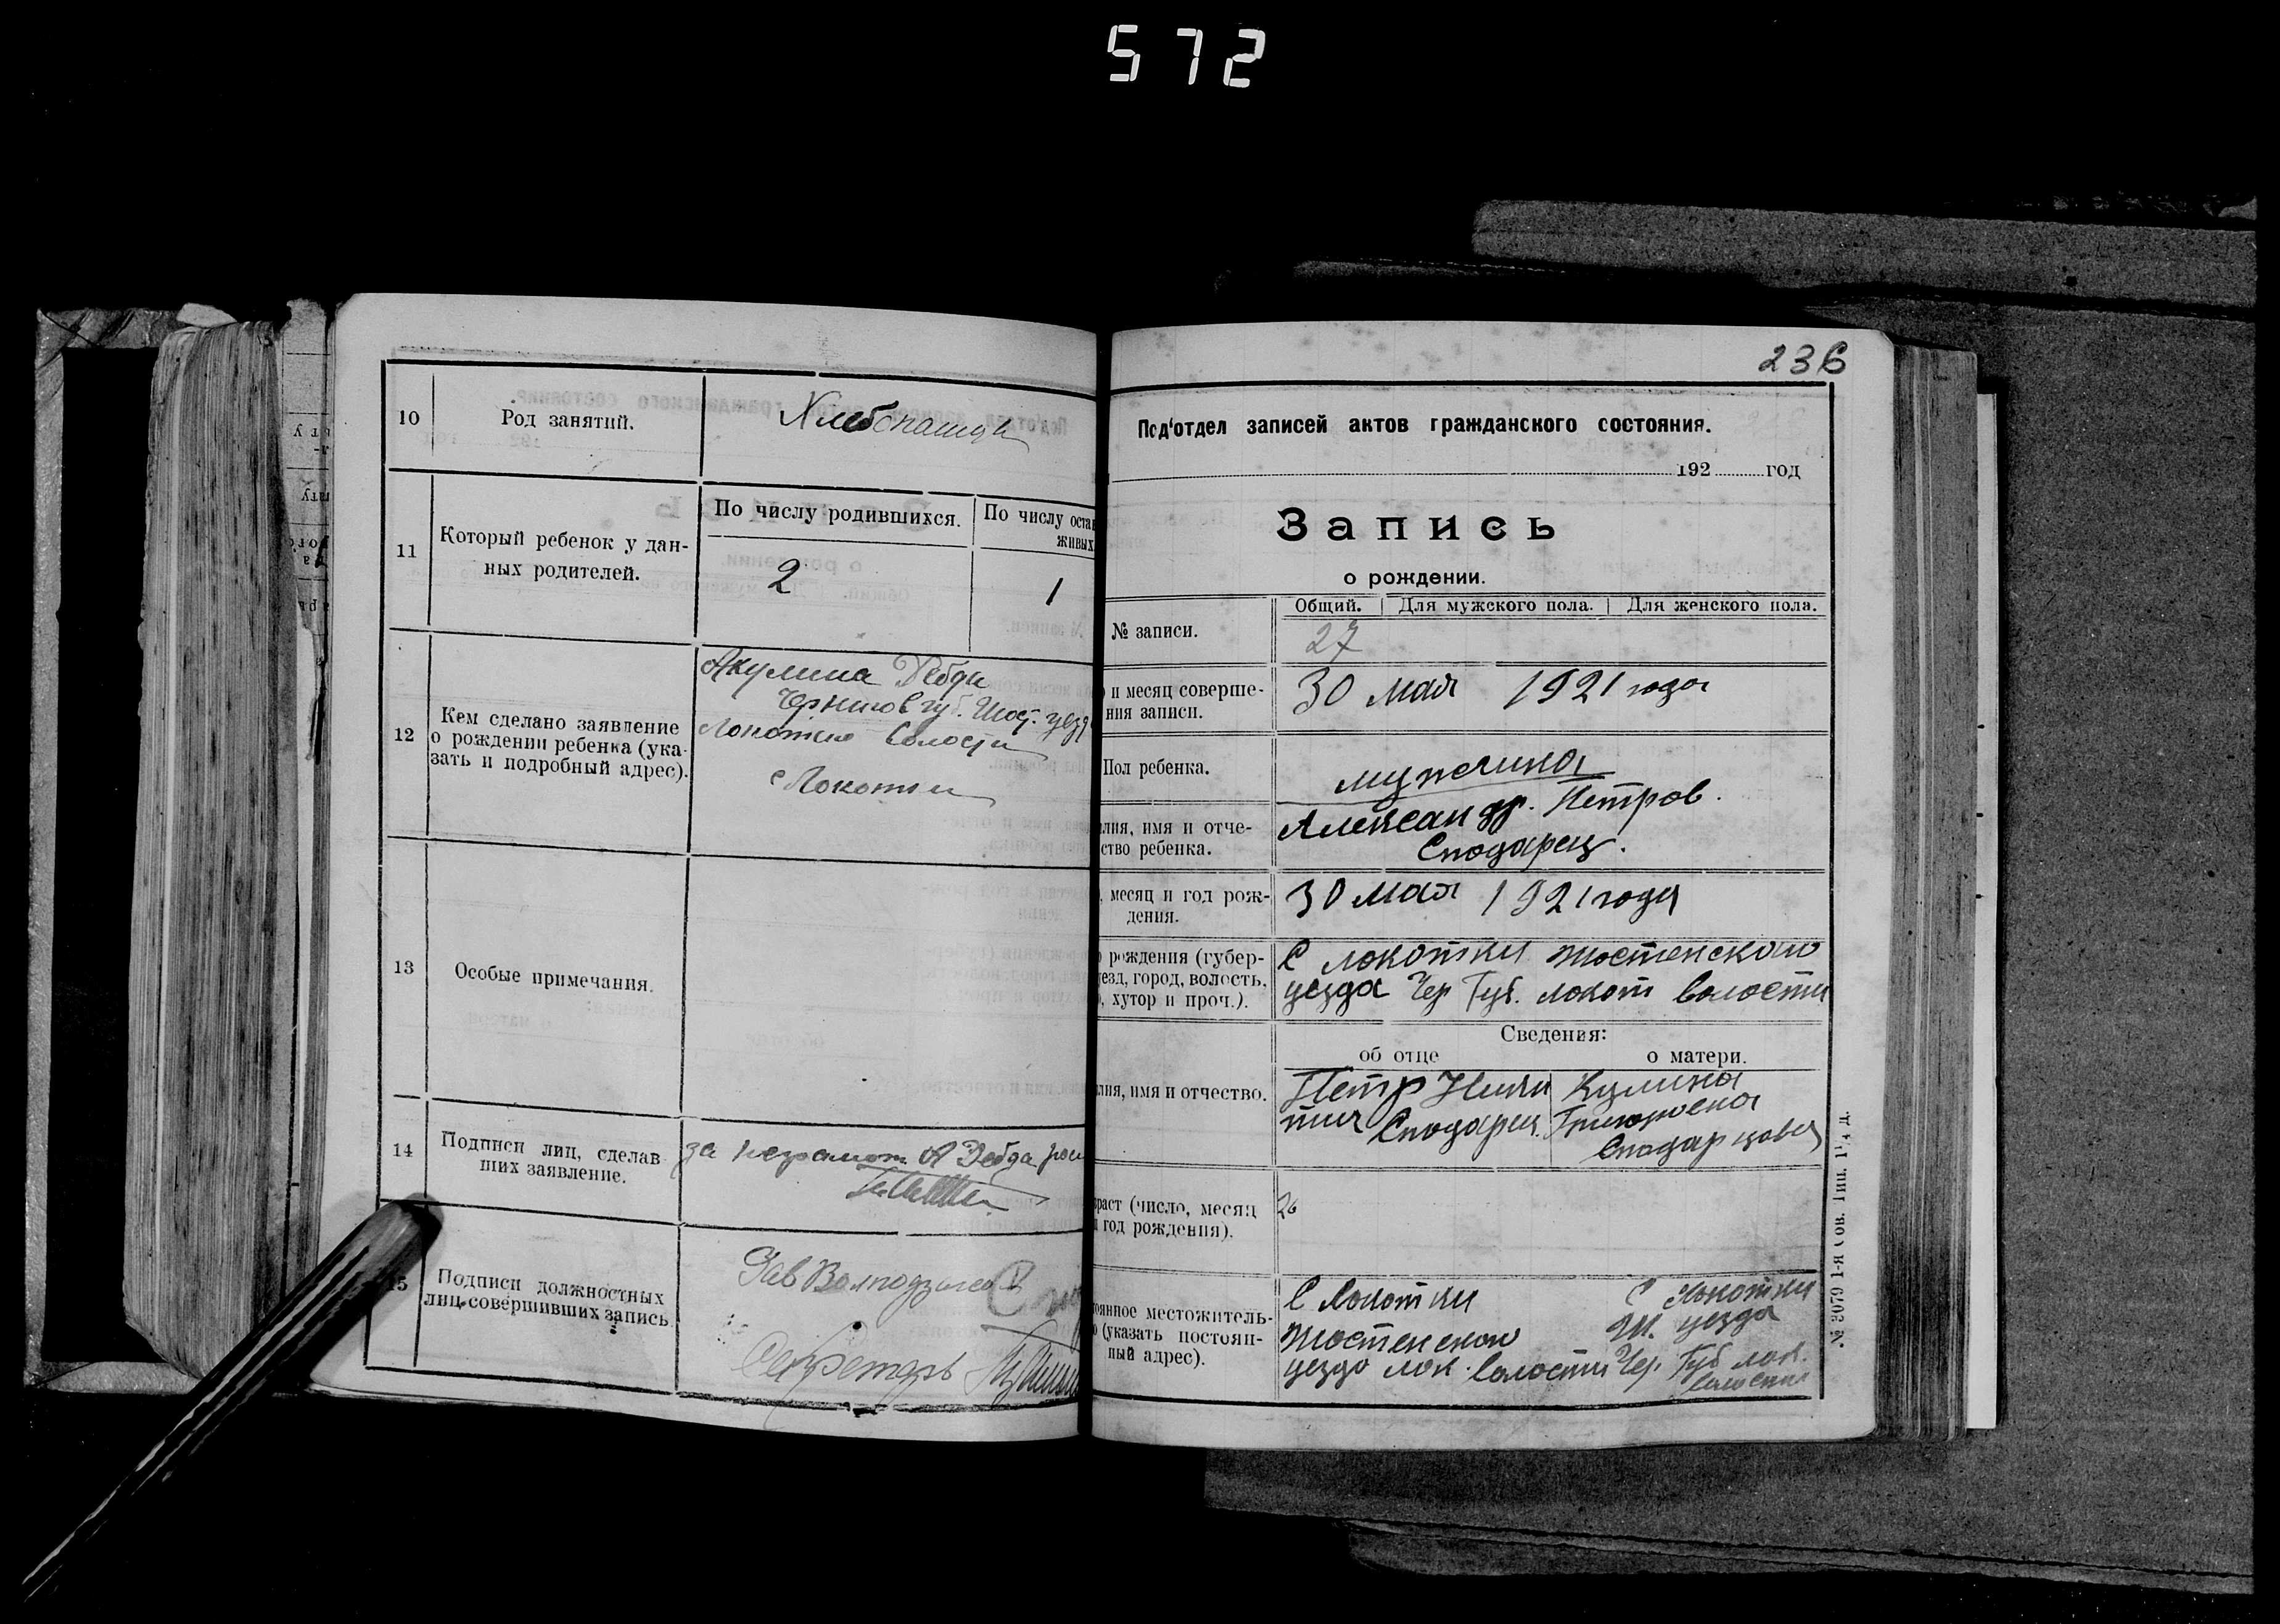 572
10 Род занятий. Хлебопашци
11 Который ребенок у дан-
ных родителей.
По числу родившихся. По числу оста
живых
2 1
12 Кем сделано заявление
о рождении ребенка (ука-
зать и подробный адрес).
Акулина Дебда
Чернигов губ. Шост. уезд
Волости
с Локотки
13 Особые примечания.
14 Подписи лиц, сделав
ших заявление.
за неграмот А Дебда
15 Подписи должностных
лиц, совершивших запись
Зав
Секретарь
236
Под‘отдел записей актов гражданского состояния.
192 год
Запись
о рождении.
Общий. Для мужского пола. Для женского пола.
№ записи. 27
и месяц соверше-
ния записи.
30 мая 1921 года
Пол ребенка. мужчина
лия, имя и отче-
ство ребенка.
Александр. Петров.
Сподарец.
, месяц и год рож-
дения.
30 мая 1921 года
рождения (губер-
езд, город, волость,
, хутор и проч.).
С Локотки Шостенского
уезда Чер Губ. Локот волости
Сведения:
об отце о матери.
лия, имя и отчество.
Петр Ники
тич Сподарец.
Кулина
Григорьевна
Сподарцова
раст (число, месяц
год рождения).
26
оянное местожитель-
о (указать постоян-
ный адрес).
С Локотки
Шостенского
уезда Лок. волости
С Локотки
Ш. уезда
Чер. Губ Лок.
волости
№ 3079 1-я Сов. Тип.